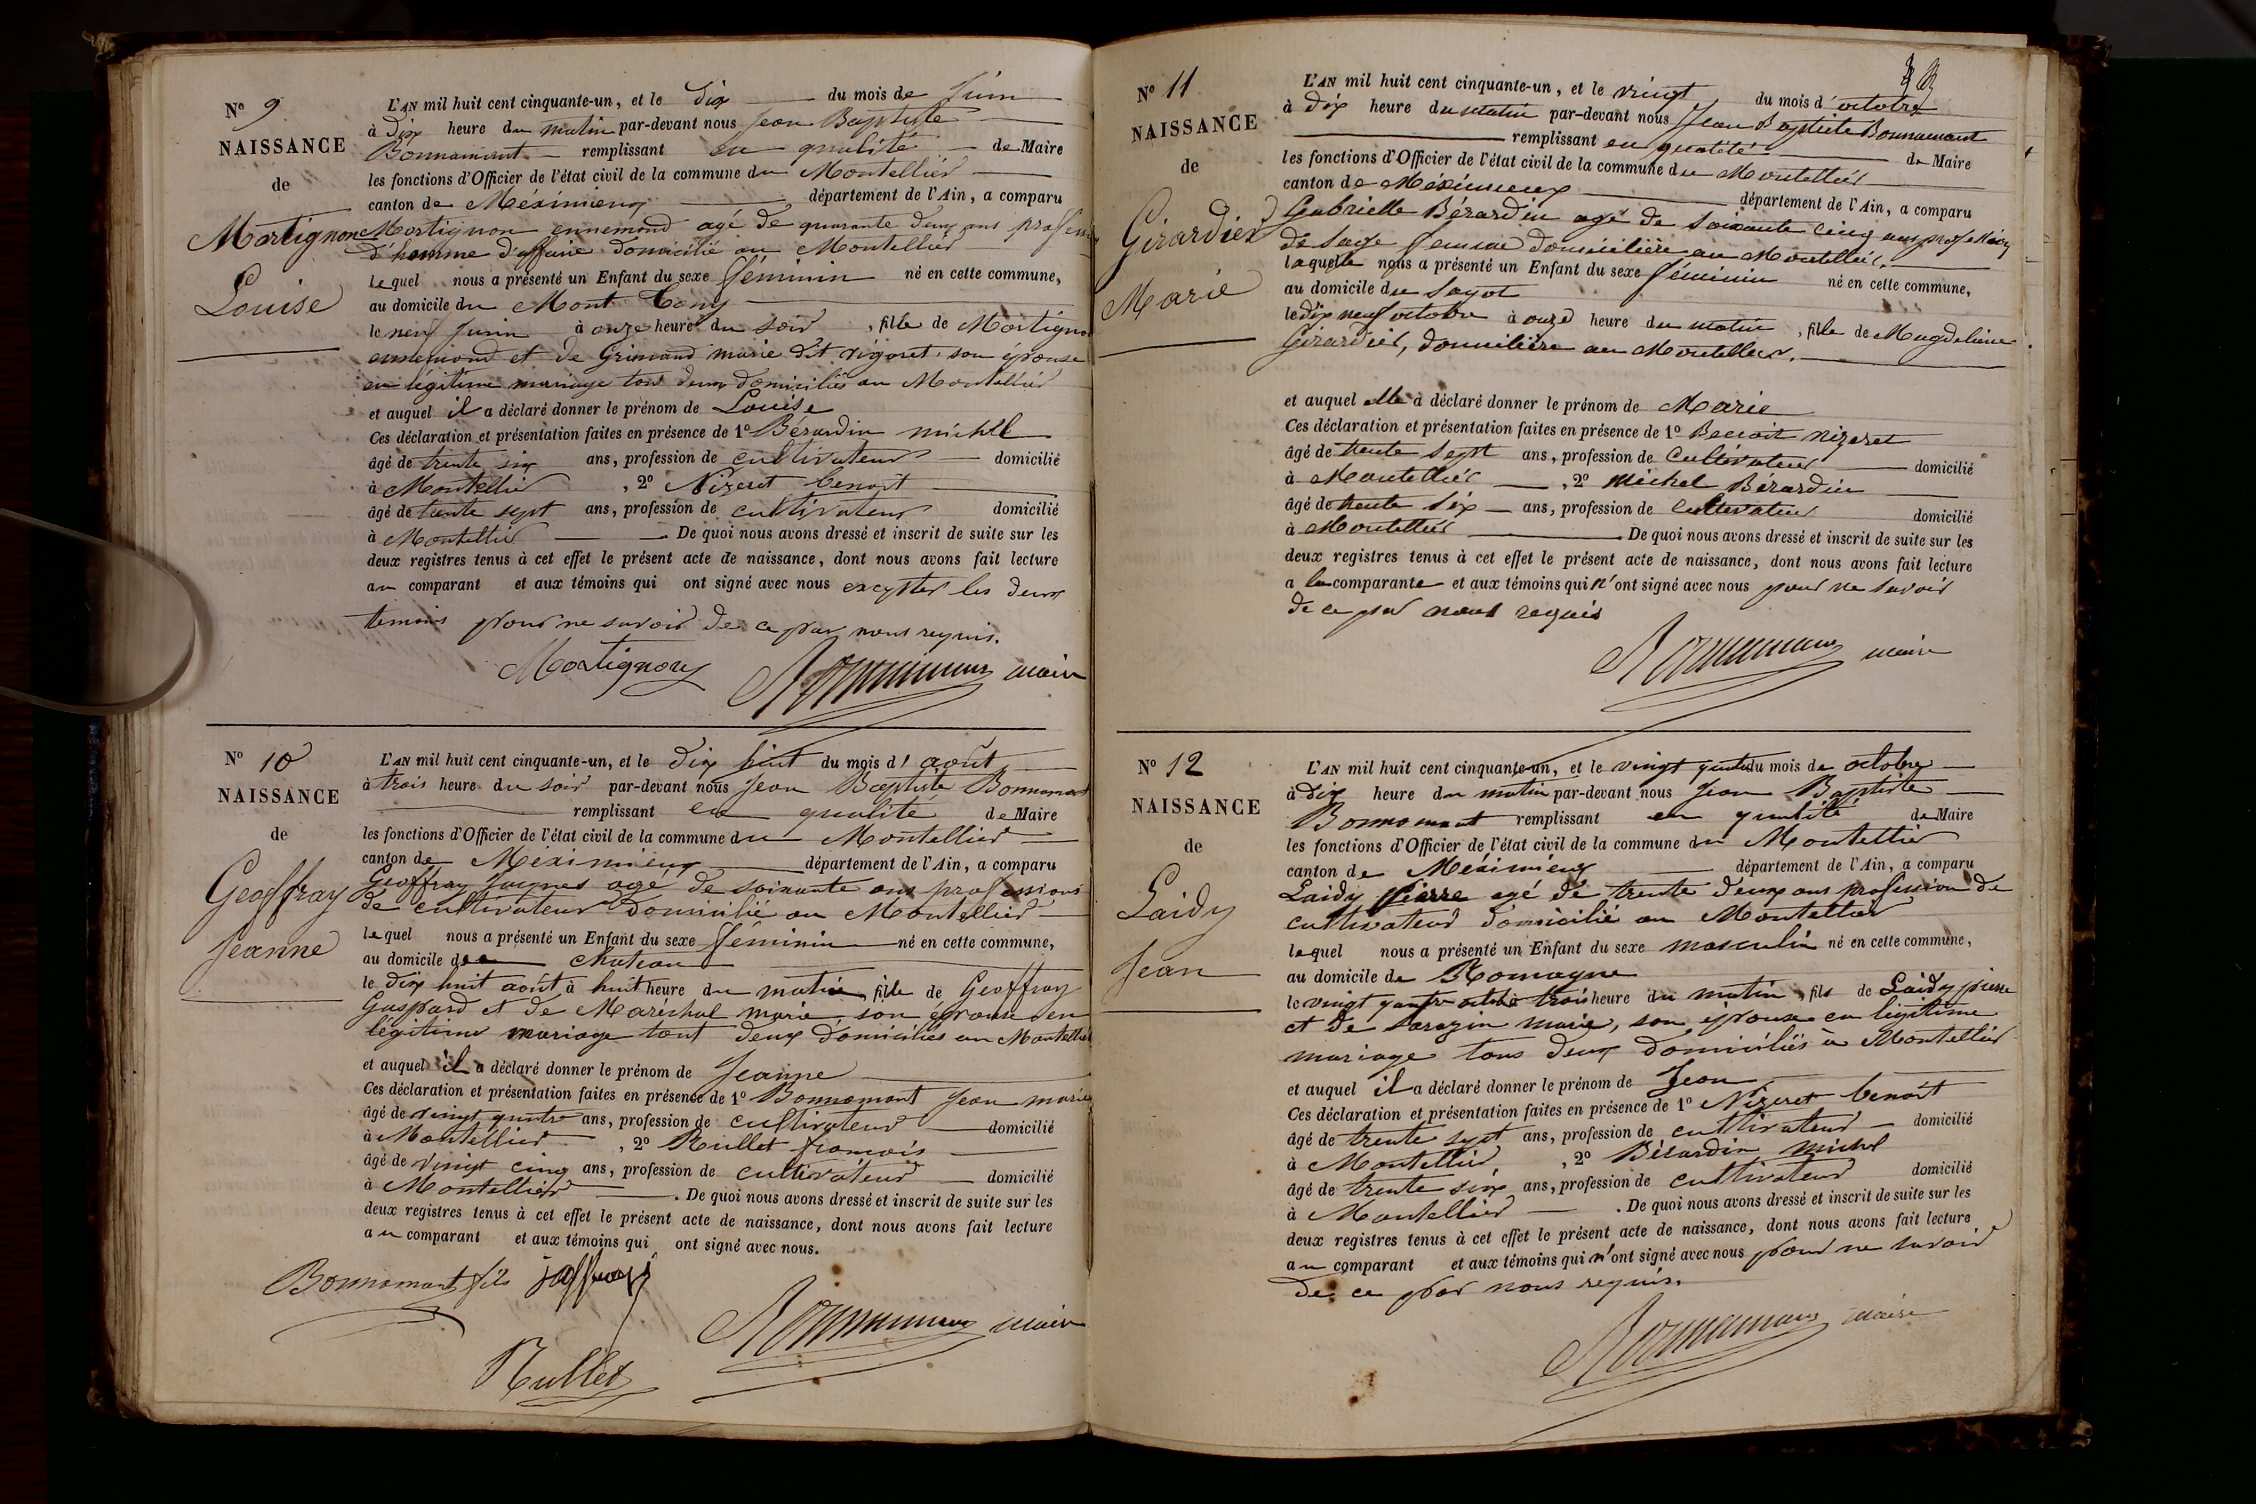 N° 9
NAISSANCE
de
Mortignon
Louise
L'AN mil huit cent cinquante-un, et le dix du mois de juin
à dix heure du matin par-devant nous Jean Baptiste
Bonnamant remplissant en qualité de Maire
les fonctions d'Officier de l'état civil de la commune du Montellier
canton de Méximieux département de l'Ain, a comparu
Mortignon ennemond agé de quarante deux ans profession
d'homme d'affaire domicilié au Montellier
lequel nous a présenté un Enfant du sexe féminin né en cette commune,
au domicile du Mont
le neuf juin à onze heure du soir, fille de Mortignon
ennemond et de Grimaud marie dit rigoret, son épouse
en légitime mariage tous deux domiciliés au Montellier
et auquel il a déclaré donner le prénom de Louise
Ces déclaration et présentation faites en présence de 1° Bérardin michel
âgé de trente six ans, profession de cultivateur domicilié
à Montellier, 2° Nizeret benoit
âgé de trente sept ans, profession de cultivateur domicilié
à Montellier. De quoi nous avons dressé et inscrit de suite sur les
deux registres tenus à cet effet le présent acte de naissance, dont nous avons fait lecture
au comparant et aux témoins qui ont signé avec nous excepter les deux
temoins pour ne savoir de ce par nous requis.
Mortignon Bonnamant maire
N° 10
NAISSANCE
de
Geoffray
Jeanne
L'AN mil huit cent cinquante-un, et le dix huit du mois d'août
à trois heure du soir par-devant nous Jean Baptiste Bonnamant
remplissant en qualité de Maire
les fonctions d'Officier de l'état civil de la commune du Montellier
canton de Meximieux département de l'Ain, a comparu
Geoffray Jaques agé de soixante ans profession
de cultivateur domicilié au Montellier
lequel nous a présenté un Enfant du sexe féminin né en cette commune,
au domicile du chateau
le dix huit août à huit heure du matin, fille de Geoffray
Gaspard et de Maréchal marie, son épouse en
légitime mariage tout deux domiciliés au Montellier
et auquel il a déclaré donner le prénom de Jeanne
Ces déclaration et présentation faites en présence de 1° Bonnamant Jean marie
âgé de vingt quatre ans, profession de cultivateur domicilié
à Montellier, 2° Rullet francois
âgé de vingt cinq ans, profession de cultivateur domicilié
à Montellier. De quoi nous avons dressé et inscrit de suite sur les
deux registres tenus à cet effet le présent acte de naissance, dont nous avons fait lecture
au comparant et aux témoins qui ont signé avec nous.
Bonnamant fils joffray
Bonnamant maire
Rullet
N° 11
NAISSANCE
de
Girardier
Marie
L'AN mil huit cent cinquante-un, et le vingt du mois d'octobre
à dix heure du matin par-devant nous Jean Baptiste Bonnamant
remplissant en qualité de Maire
les fonctions d'Officier de l'état civil de la commune du Montellier
canton de Méximieux département de l'Ain, a comparu
Gabrielle Bérardin agé de soixante cinq ans profession
de sage femme domicilière au Montellier,
laquelle nous a présenté un Enfant du sexe féminin né en cette commune,
au domicile du Sayot
le dix neuf octobre à onze heure du matin, fille de Magdeleine
Girardier, domicilière au Montellier.
et auquel elle a déclaré donner le prénom de Marie
Ces déclaration et présentation faites en présence de 1° Benoit nizeret
âgé de trente sept ans, profession de Cultivateur domicilié
à Montellier, 2° Michel Bérardin
âgé de trente six ans, profession de Cultivateur domicilié
à Montellier. De quoi nous avons dressé et inscrit de suite sur les
deux registres tenus à cet effet le présent acte de naissance, dont nous avons fait lecture
a la comparante et aux témoins qui n'ont signé avec nous pour ne savoir
de ce par nous requis
Bonnamant maire
N° 12
NAISSANCE
de
Laidy
Jean
L'AN mil huit cent cinquante-un, et le vingt quatre du mois de octobre
à dix heure du matin par-devant nous Jean Baptiste
Bonnamant remplissant en qualité de Maire
les fonctions d'Officier de l'état civil de la commune du Montellier
canton de Méximieux département de l'Ain, a comparu
Laidy pierre agé de trente deux ans profession de
cultivateur domicilié au Montellier
lequel nous a présenté un Enfant du sexe masculin né en cette commune,
au domicile de Romagne
le vingt quatre octobre trois heure du matin, fils de Laidy pierre
et de sarazin marie, son épouse en légitime
mariage tous deux domiciliés à Montellier
et auquel il a déclaré donner le prénom de Jean
Ces déclaration et présentation faites en présence de 1° Nizeret benoit
âgé de trente sept ans, profession de cultivateur domicilié
à Montellier, 2° Bérardin michel
âgé de trente six ans, profession de cultivateur domicilié
à Montellier. De quoi nous avons dressé et inscrit de suite sur les
deux registres tenus à cet effet le présent acte de naissance, dont nous avons fait lecture
au comparant et aux témoins qui n'ont signé avec nous pour ne savoir
de ce par nous requis.
Bonnamant maire